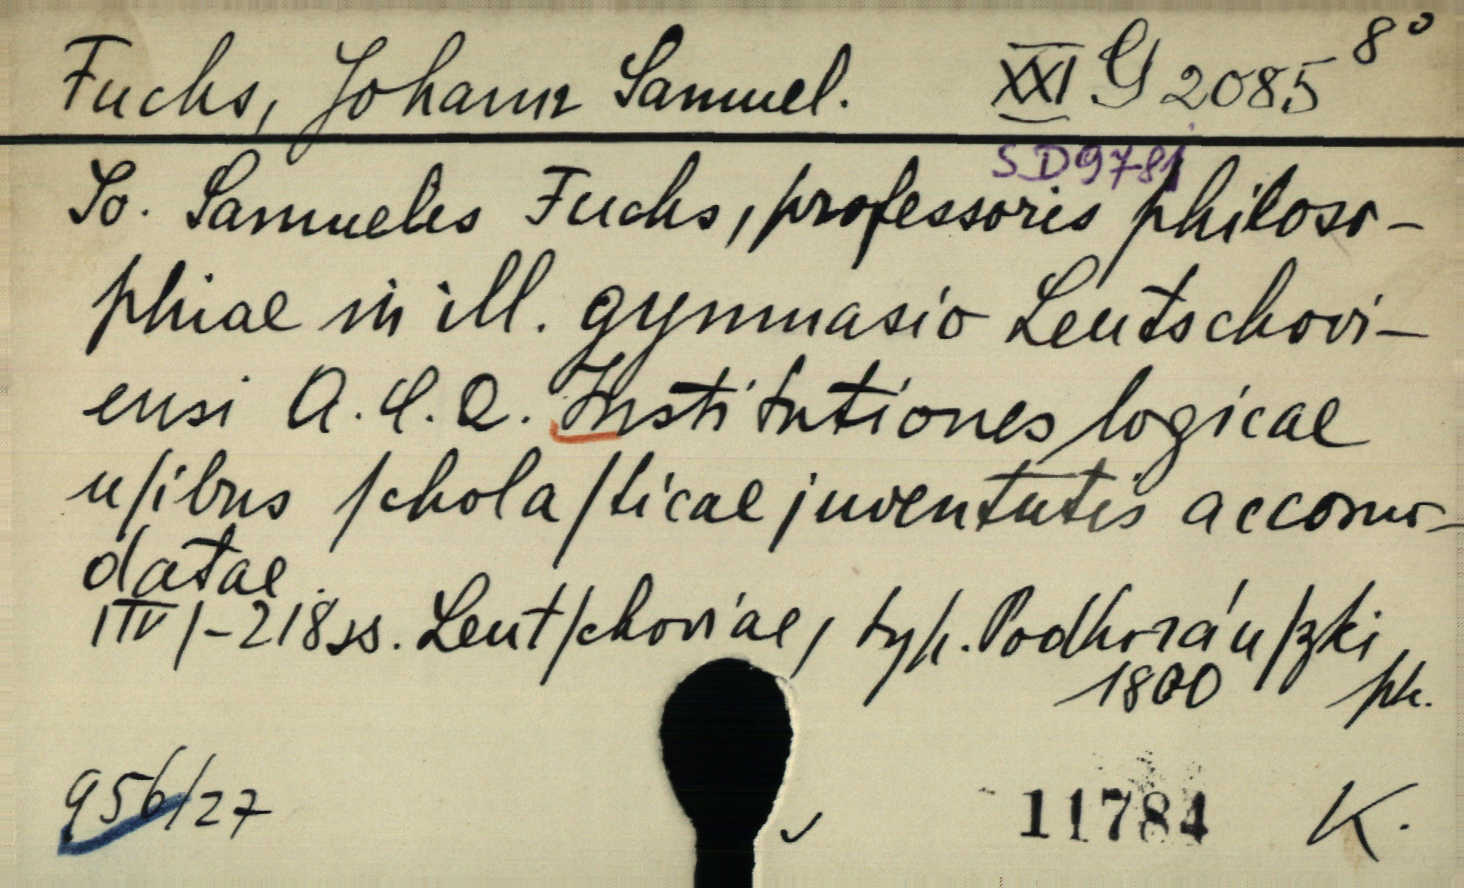 Fuchs, Johann Samuel. XXI G 2085 8°
SD9781
Io. Samuelis Fuchs, professoris philoso-
phiae in ill. gymnasio Leutschovi-
ensi A. C. Q. Institutiones logicae
uſibus ſcholaſticae juventutis accomo-
datae.
218 ss. Leutſchoviae, typ. Podhoránſzki
1800 pk.
956/27 11784 K.